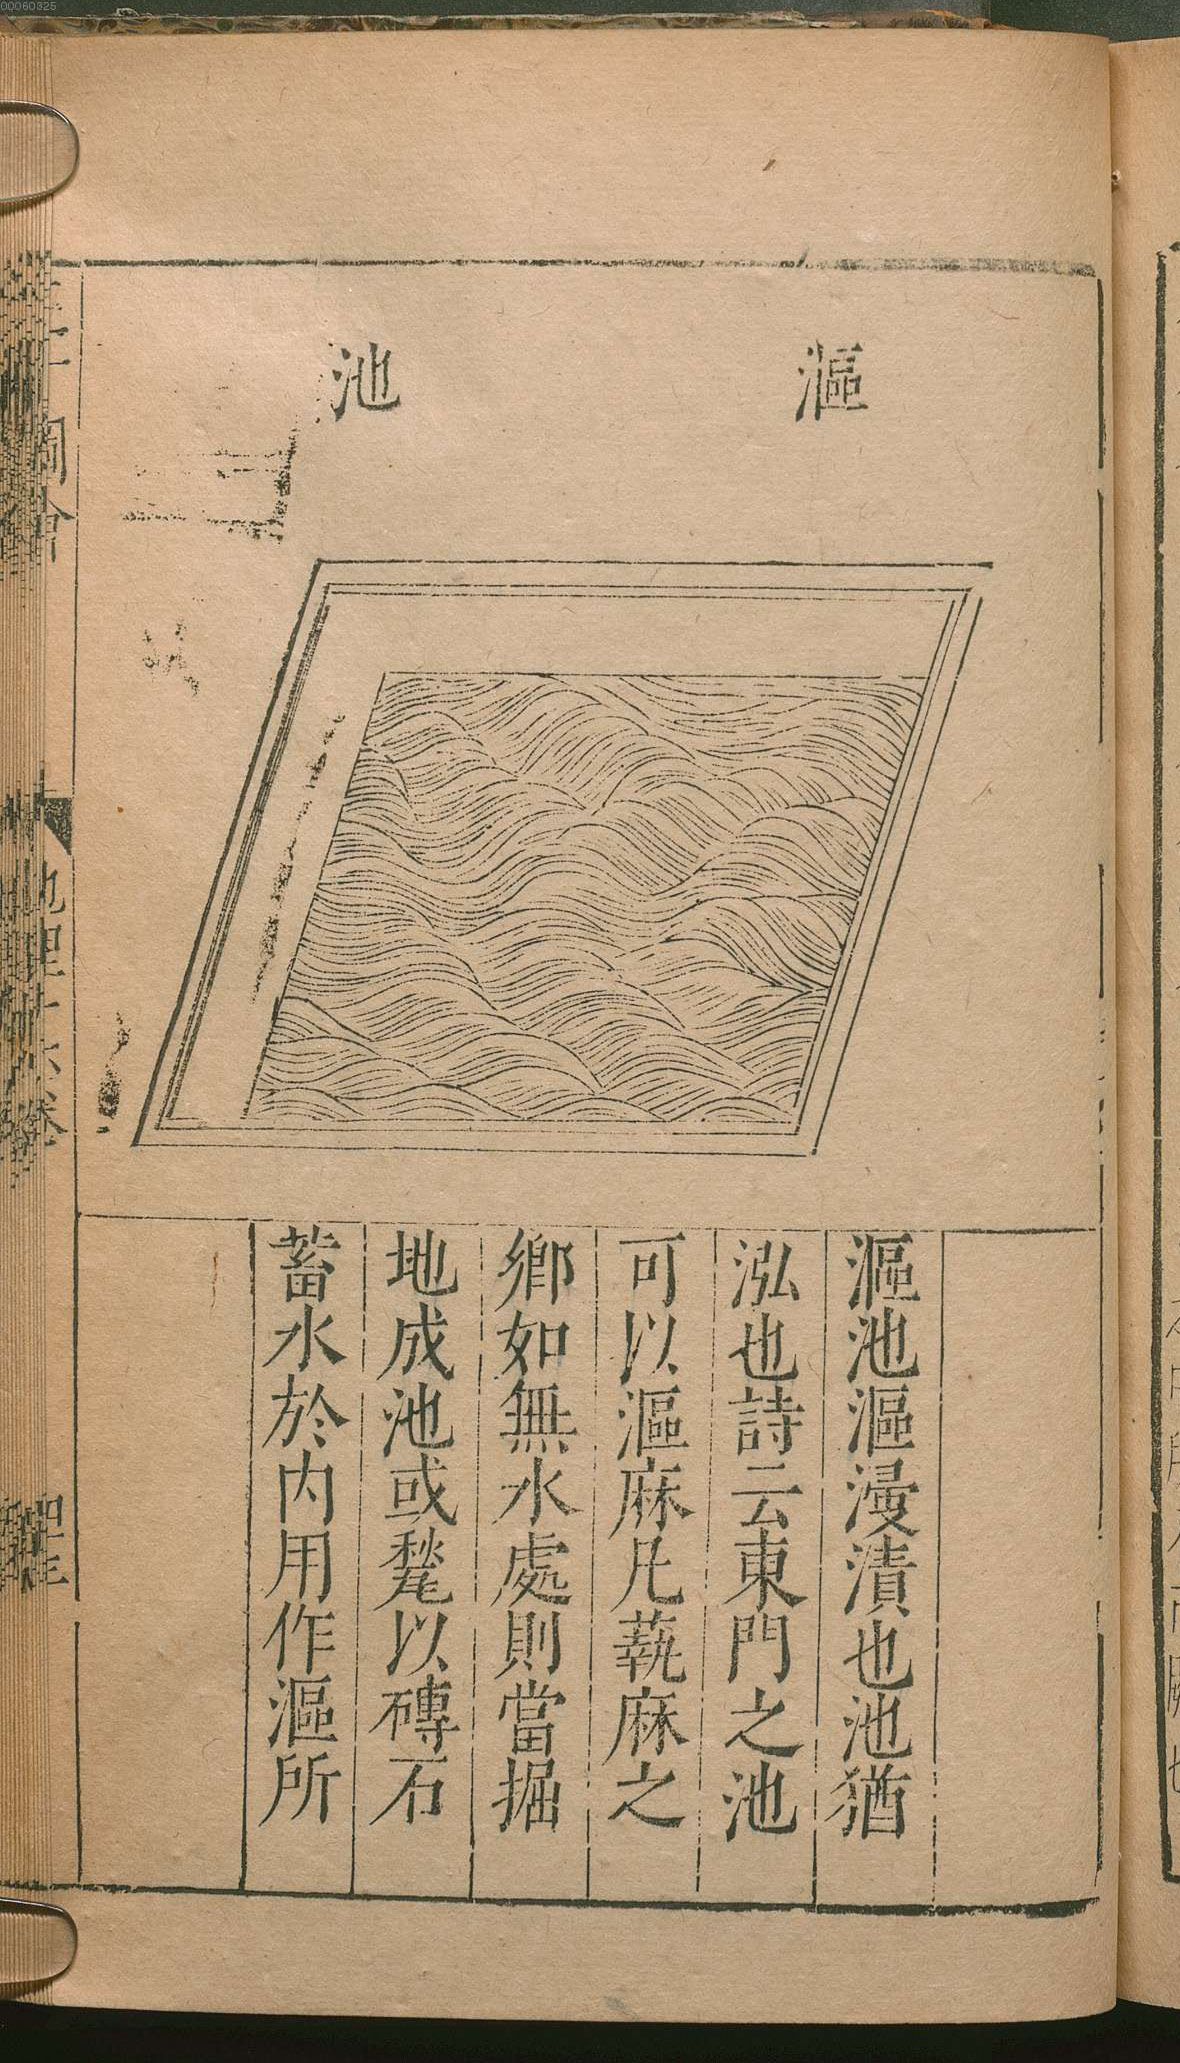 00060325
漚池
漚池漚浸漬也池猶
泓也詩云東門之池
可以漚麻凡蓺麻之
鄉如無水處則當掘
地成池或甃以磚石
蓄水於內用作漚所